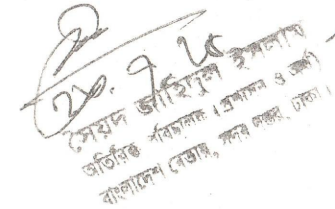 ২০.৭.২৫
সৈয়দ জাহিদুল ইসলাম
অতিরিক্ত পরিচালক (প্রশাসন ও অর্থ)
বাংলাদেশ বেতার, সদর দপ্তর, ঢাকা।